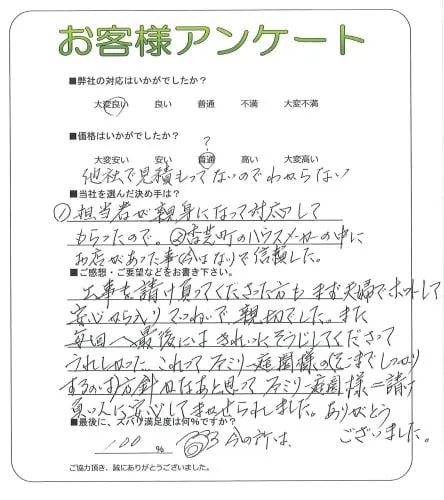 お客様アンケート
■弊社の対応はいかがでしたか?
大変良い 良い 普通 不満 大変不満
■価格はいかがでしたか?
?
大変安い 安い 普通 高い 大変高い
他社で見積もってないのでわからない
■当社を選んだ決め手は?
①担当者が親身になって対応して
もらったので。②香芝町のハウスメーカーの中に
お店があった事(今はなし)で信頼した。
■ご感想・ご要望などをお書き下さい。
工事を請け負ってくださった方も まず夫婦で
安心から入り 親切でした。また
毎回 最後には きれいにそうじしてくださって
うれしかった これってファミリー庭園様の(そこまでしっかり
するのは)方針かなあと思って ファミリー庭園様=請け
負い人に安心してまかせられました。ありがとう
ございました。
■最後に、ズバリ満足度は何%ですか?
100 % 今の所は
ご協力頂き、誠にありがとうございました。